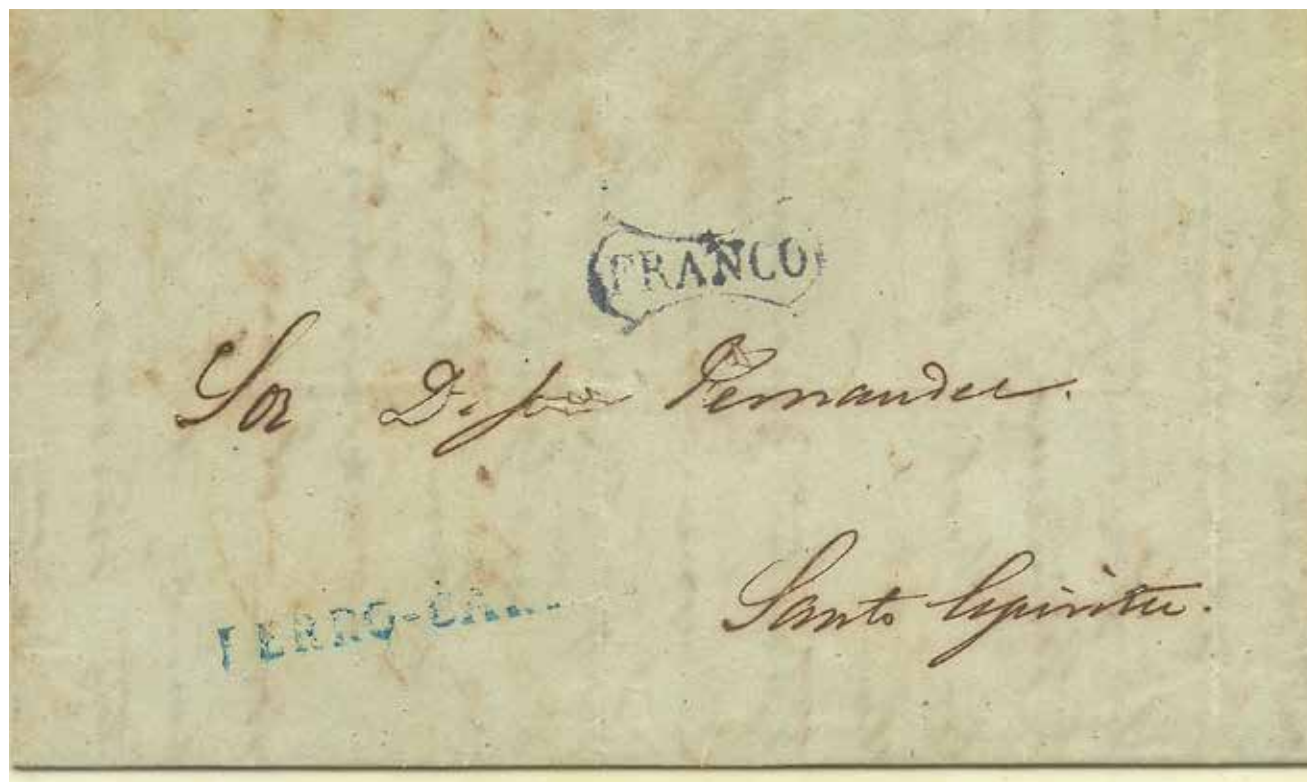 FRANCO
Sor D. José Fernandez.
Santo Espiritu.
FERRO-CARR